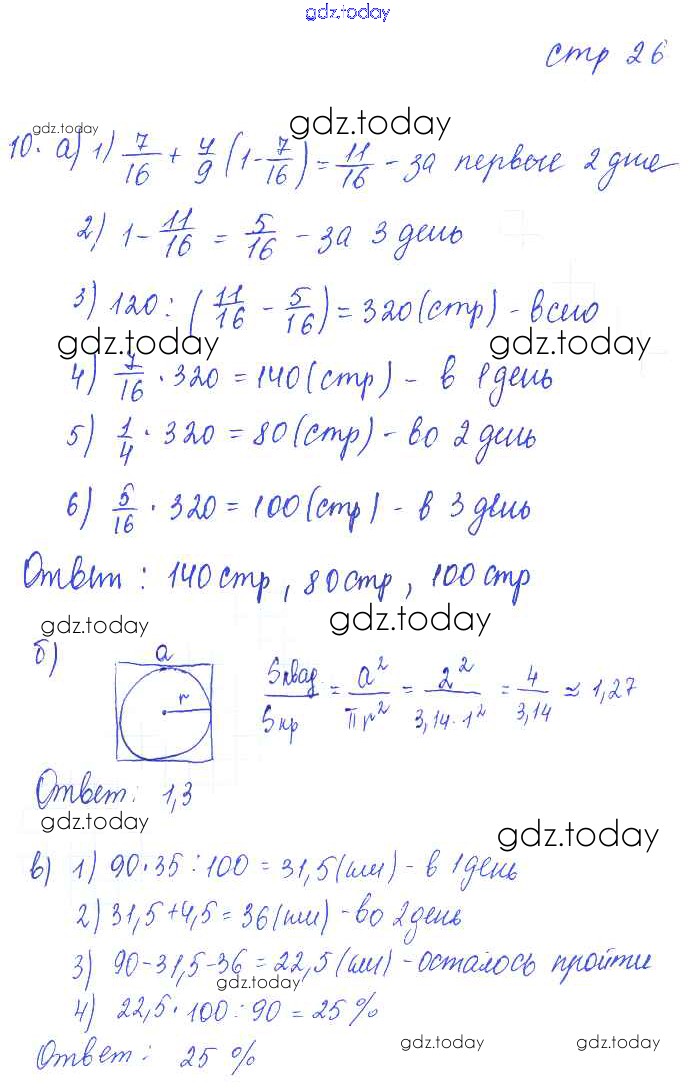 gdz.today
стр 26
gdz.today
gdz.today
10. а) 1) 7/16 + 4/9 (1 - 7/16) = 11/16 - за первые 2 дне
2) 1 - 11/16 = 5/16 - за 3 день
3) 120 : (11/16 - 5/16) = 320 (стр) - всего
gdz.today gdz.today
4) 7/16 · 320 = 140 (стр) - в 1 день
5) 1/4 · 320 = 80 (стр) - во 2 день
6) 5/16 · 320 = 100 (стр) - в 3 день
Ответ : 140 стр , 80 стр , 100 стр
gdz.today gdz.today
б) a r Sквад/Sкр = a²/πr² = 2²/3,14·1² = 4/3,14 ≈ 1,27
Ответ: 1,3
gdz.today gdz.today
в) 1) 90·35 : 100 = 31,5 (км) - в 1 день
2) 31,5 + 4,5 = 36 (км) - во 2 день
3) 90 - 31,5 - 36 = 22,5 (км) - осталось пройти
4) 22,5 · 100 : 90 = 25 %
Ответ : 25 %
gdz.today gdz.today